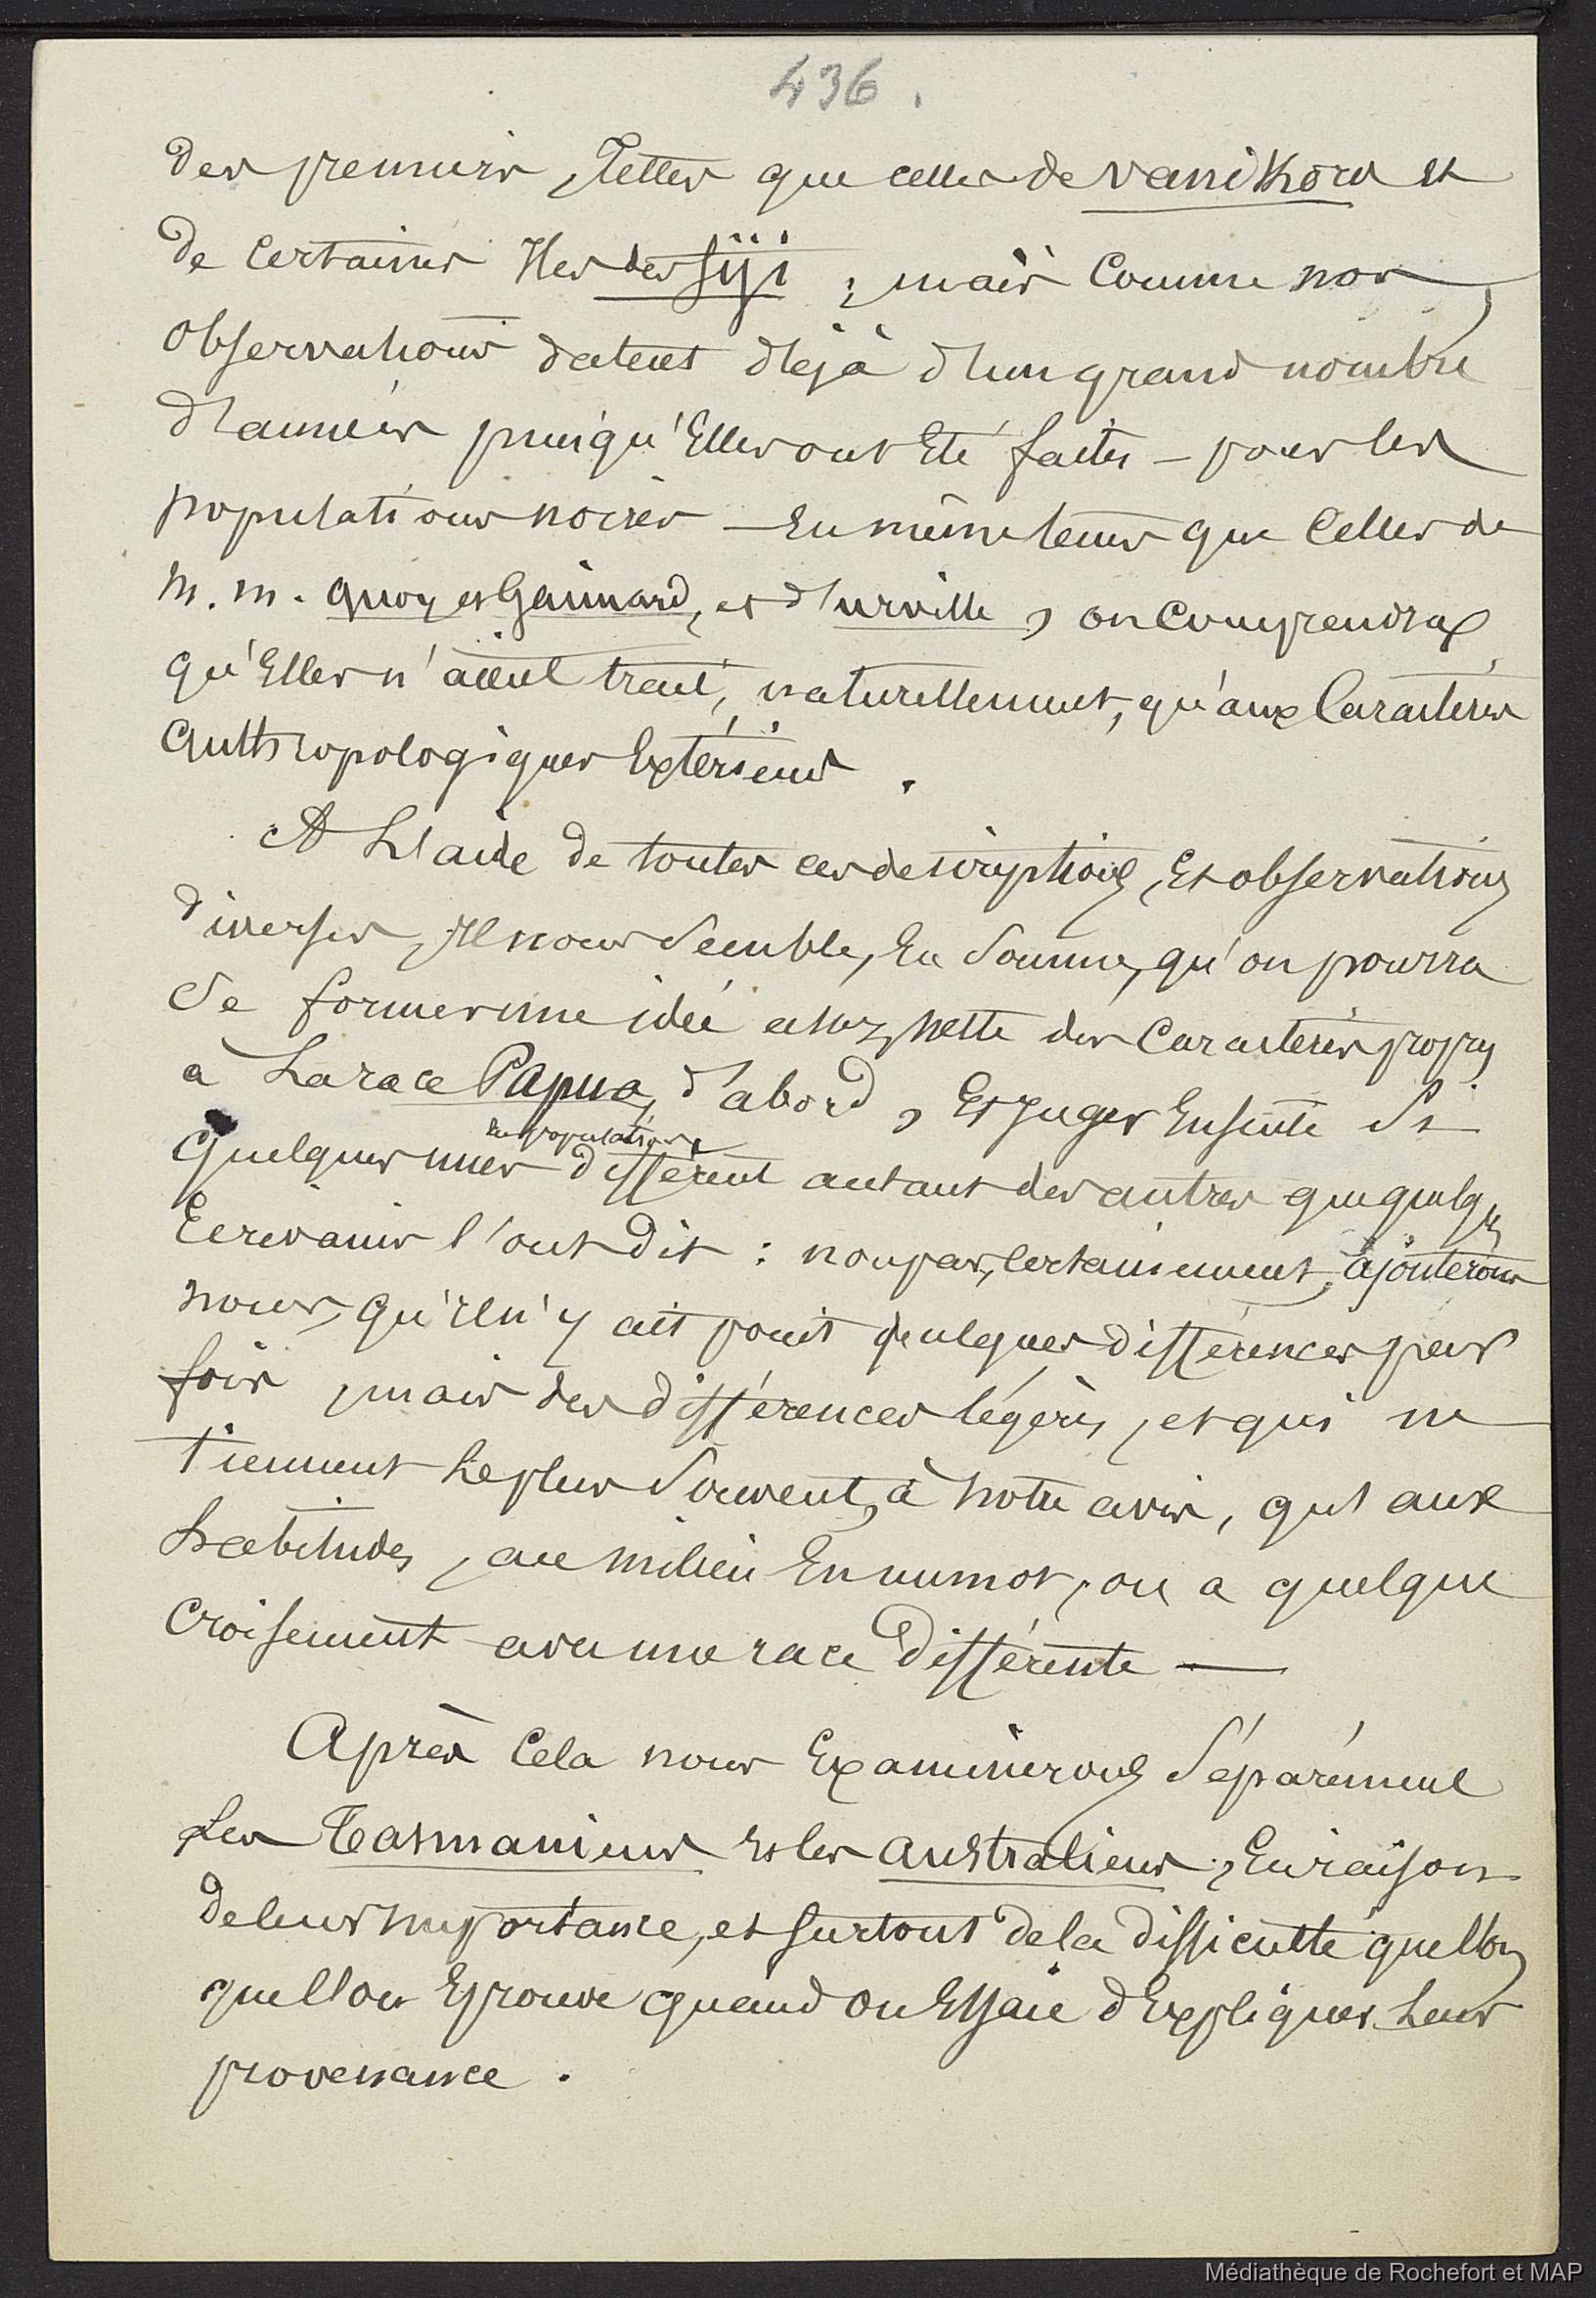 436.
des premiers, telles que celles de Vanikoro et
de certaines Iles des Fiji ; mais comme nos
observations datent déjà d'un grand nombre
d'années puisqu'Elles ont Eté faites – pour les
populations noires – En même tems que Celles de
M. M. Quoy et Gaimard, et d'urville, on comprendra
qu'Elles n'aient trait, naturellement, qu'aux Caractères
anthropologiques Extérieurs.
A L'aide de toutes ces descriptions, Et observations
diverses, Il nous Semble, En Somme, qu'on pourra
Se former une idée assez nette des Caractères propres
a La race Papua, d'abord, Et juger Ensuite Si
populations
quelques unes diffèrent autant des autres que quelques
Ecrivains l'ont dit : non pas, certainement, ajouterons
nous, qu'Il n'y ait point quelques différences par
fois, mais des différences légères, et qui ne
tiennent Le plus Souvent, à notre avis, qu'aux
habitudes, au milieu En un mot, ou a quelque
Croisement avec une race différente —
Après Cela nous Examinerons Séparément
Les Tasmaniens Et les australiens, En raison
de leur importance, et surtout de la difficulté que l'on
que l'on Eprouve quand on Essaie d'Expliquer Leur
provenance.
Médiathèque de Rochefort et MAP